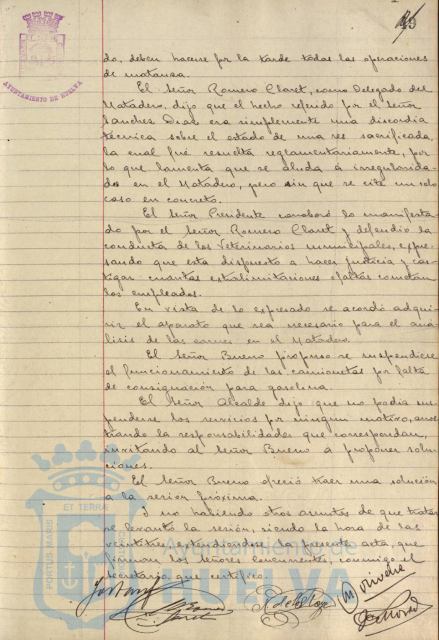 AYUNTAMIENTO DE HUELVA
do, deben hacerse por la tarde todas las operaciones
de matanza.
El Señor Romero Claret, como Delegado del
Matadero, dijo que el hecho referido por el Señor
Sanchez Diaz era simplemente una discordia
técnica sobre el estado de una res sacrificada,
la cual fué resuelta reglamentariamente, por
lo que lamenta que se aluda a irregularida-
des en el Matadero, pero sin que se cite un solo
caso en concreto.
El Señor Presidente corroboró lo manifesta-
do por el Señor Romero Claret y defendió la
conducta de los Veterinarios municipales, expre-
sando que está dispuesto a hacer justicia y cas-
tigar cuantas extralimitaciones o faltas cometan
los empleados.
En vista de lo expresado se acordó adqui-
rir el aparato que sea necesario para el aná-
lisis de las carnes en el Matadero.
El Señor Bueno propuso se suspendiere
el funcionamiento de las camionetas por falta
de consignación para gasolina.
El Señor Alcalde dijo que no podia sus-
penderse los servicios por ningún motivo,
la responsabilidades que correspondan,
invitando al Señor Bueno a proponer solu-
ciones.
El Señor Bueno ofreció traer una solución
a la sesión próxima.
Y no habiendo otros asuntos de que tratar
se levantó la sesión, siendo la hora de las
veintitres, extendiendose la presente acta, que
firman los señores concurrentes, conmigo el
Secretario que certifico.
PORTUS MARIS ET TERRAE
Ayuntamiento de
HUELVA